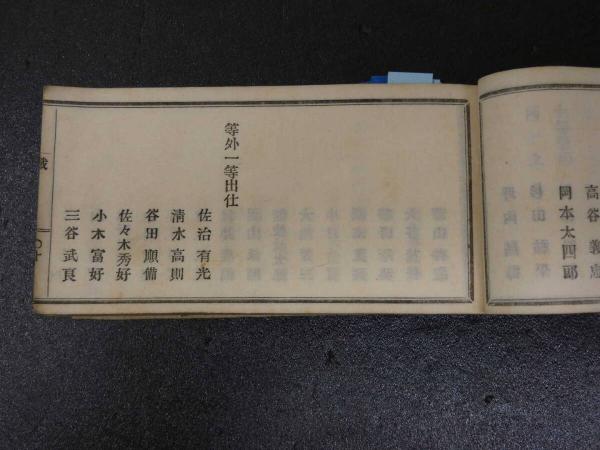 高谷義忠
岡本太四郎
等外一等出仕
佐治有光
清水高則
谷田順備
佐々木秀好
小木富好
三谷武良